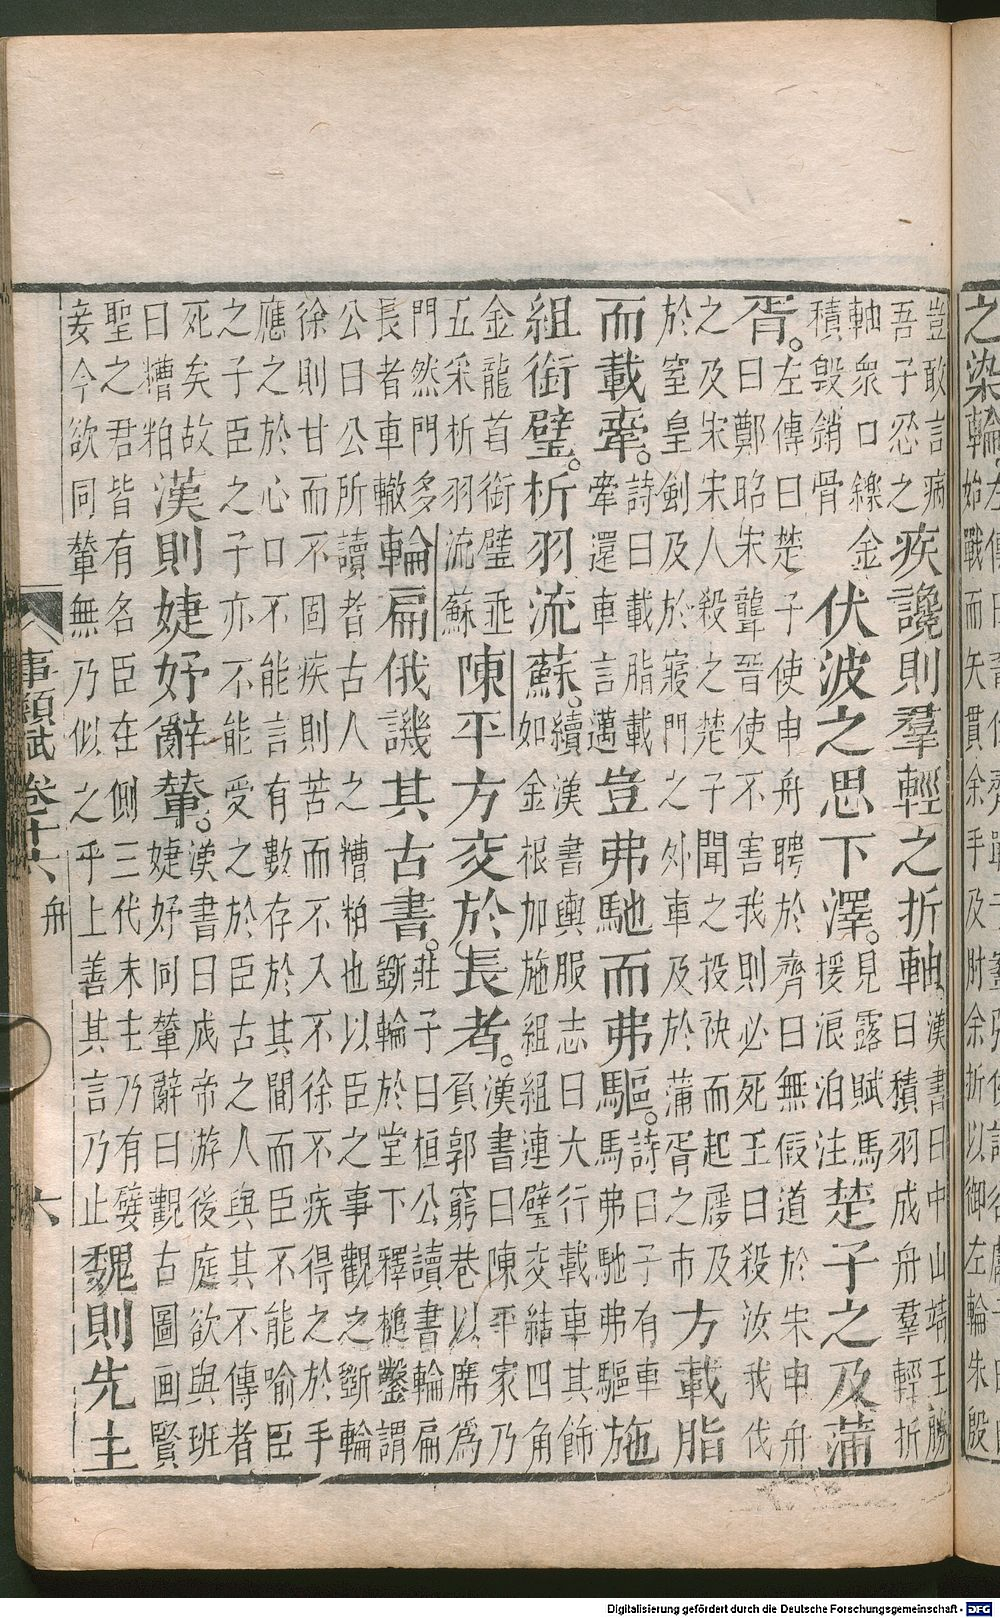 之染輪
始戰而矢貫余手及肘余折以御左輪朱殷
豈敢言病
吾子忍之
疾讒則羣輕之折軸
漢書曰中山靖王勝
曰積羽成舟羣輕折
軸衆口鑠金
積毀銷骨
伏波之思下澤。
見露賦馬
援浪泊注
楚子之及蒲
胥。
左傳曰楚子使申舟聘於齊曰無假道於宋申舟
曰鄭昭宋聾晉使不害我則必死王曰殺汝我伐
之及宋宋人殺之楚子聞之投袂而起屨及
於窒皇劍及於寢門之外車及於蒲胥之市
方載脂
而載舝。
詩曰載脂載
舝還車言邁
豈弗馳而弗驅。
詩曰子有車
馬弗馳弗驅
施
組銜璧。析羽流蘇。
續漢書輿服志曰大行載車其飾
如金根加施組組連璧交結四角
金龍首銜璧垂
五采析羽流蘇
陳平方交於長者。
漢書曰陳平家乃
負郭窮巷以席為
門然門多
長者車轍
輪扁俄譏其古書。
莊子曰桓公讀書輪扁
斲輪於堂下釋槌鑿謂
公曰公所讀者古人之糟粕也以臣之事觀之斲輪
徐則甘而不固疾則苦而不入不徐不疾得之於手
應之於心口不能言有數存於其間而臣不能喻臣
之子臣之子亦不能受之於臣古之人與其不傳者
死矣故
曰糟粕
漢則婕妤辭輦。
漢書曰成帝游後庭欲與班
婕妤同輦辭曰觀古圖画賢
聖之君皆有名臣在側三代末主乃有嬖
妾今欲同輦無乃似之乎上善其言乃止
魏則先主
事類賦 卷十六 舟 六
Digitalisierung gefördert durch die Deutsche Forschungsgemeinschaft - DFG